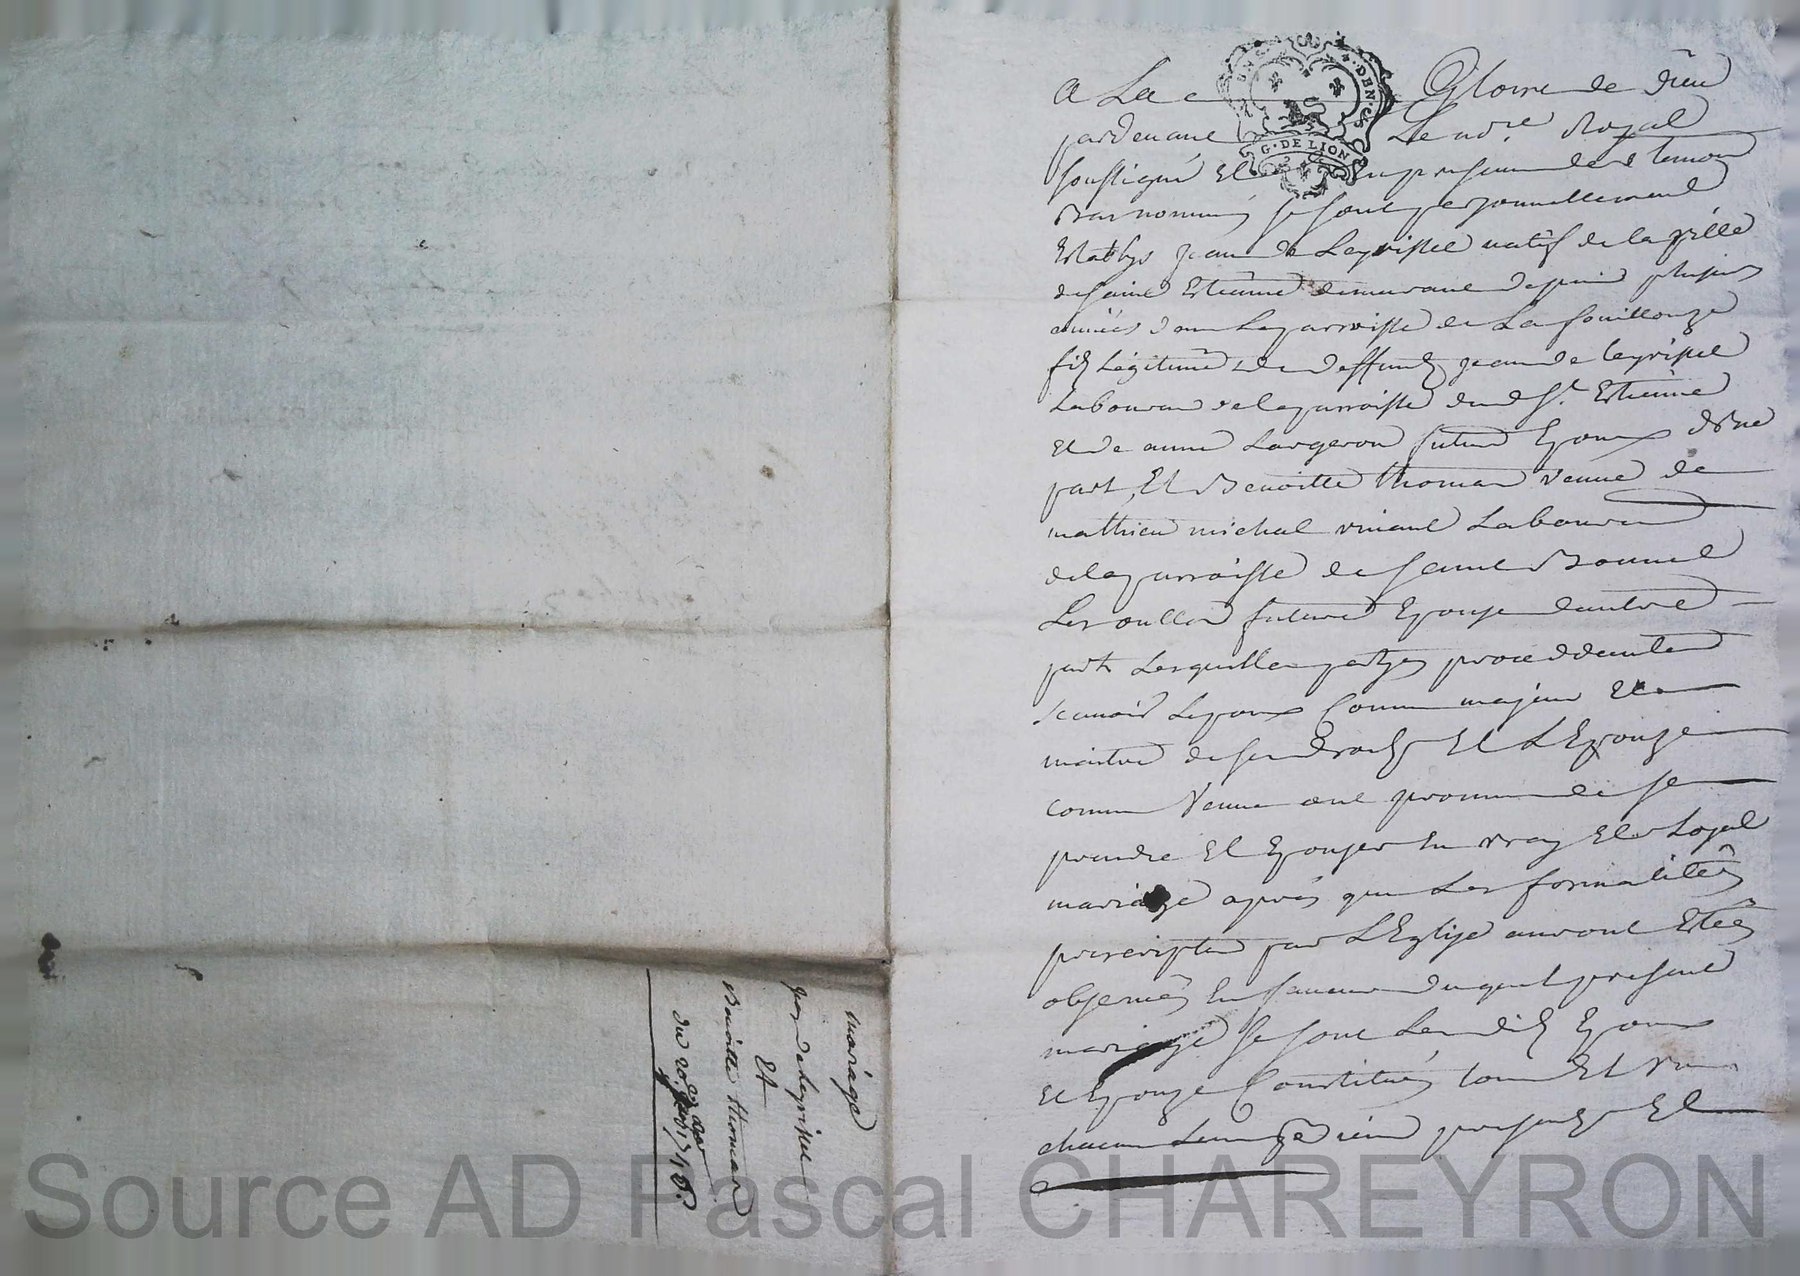 A La Gloire de Dieu
pardevant Le no.re Royal
soussigné Et En presence des temoins
Bas nommés se sont personnellement
Establys Jean de Leyrissel natif de la ville
de saint Etienne demeurant depuis plusieurs
années dans La parroisse de La fouillouze
fils Légitime de deffunts Jean de leyrissel
Laboureur de la parroisse dud St. Etienne
Et de anne Largeron futur Epoux d'une
part, Et Benoitte thomas veuve de
mathieu michal vivant Laboureur
de la parroisse de saint Bonnet
Les oulles future Epouse d'autre
part Lesquelles partyes proceddantes
scavoir Lepoux Comme majeur Et
maitre de ses droits Et L'Epouze
comme veuve ont promis de se
prendre Et Epouser En vray Et Loyal
mariage après que Les formalités
prescriptes par L'Eglise auront Estées
observées En faveur duquel present
mariage se sont Lesdits Epoux
Et Epouze Constitués tous Et un
chacuns Leurs Biens presents Et
mariage
Jean deleyrissel
Et
Benoitte thomas
du 20. 1748.
G. DE LION
Source AD Pascal CHAREYRON